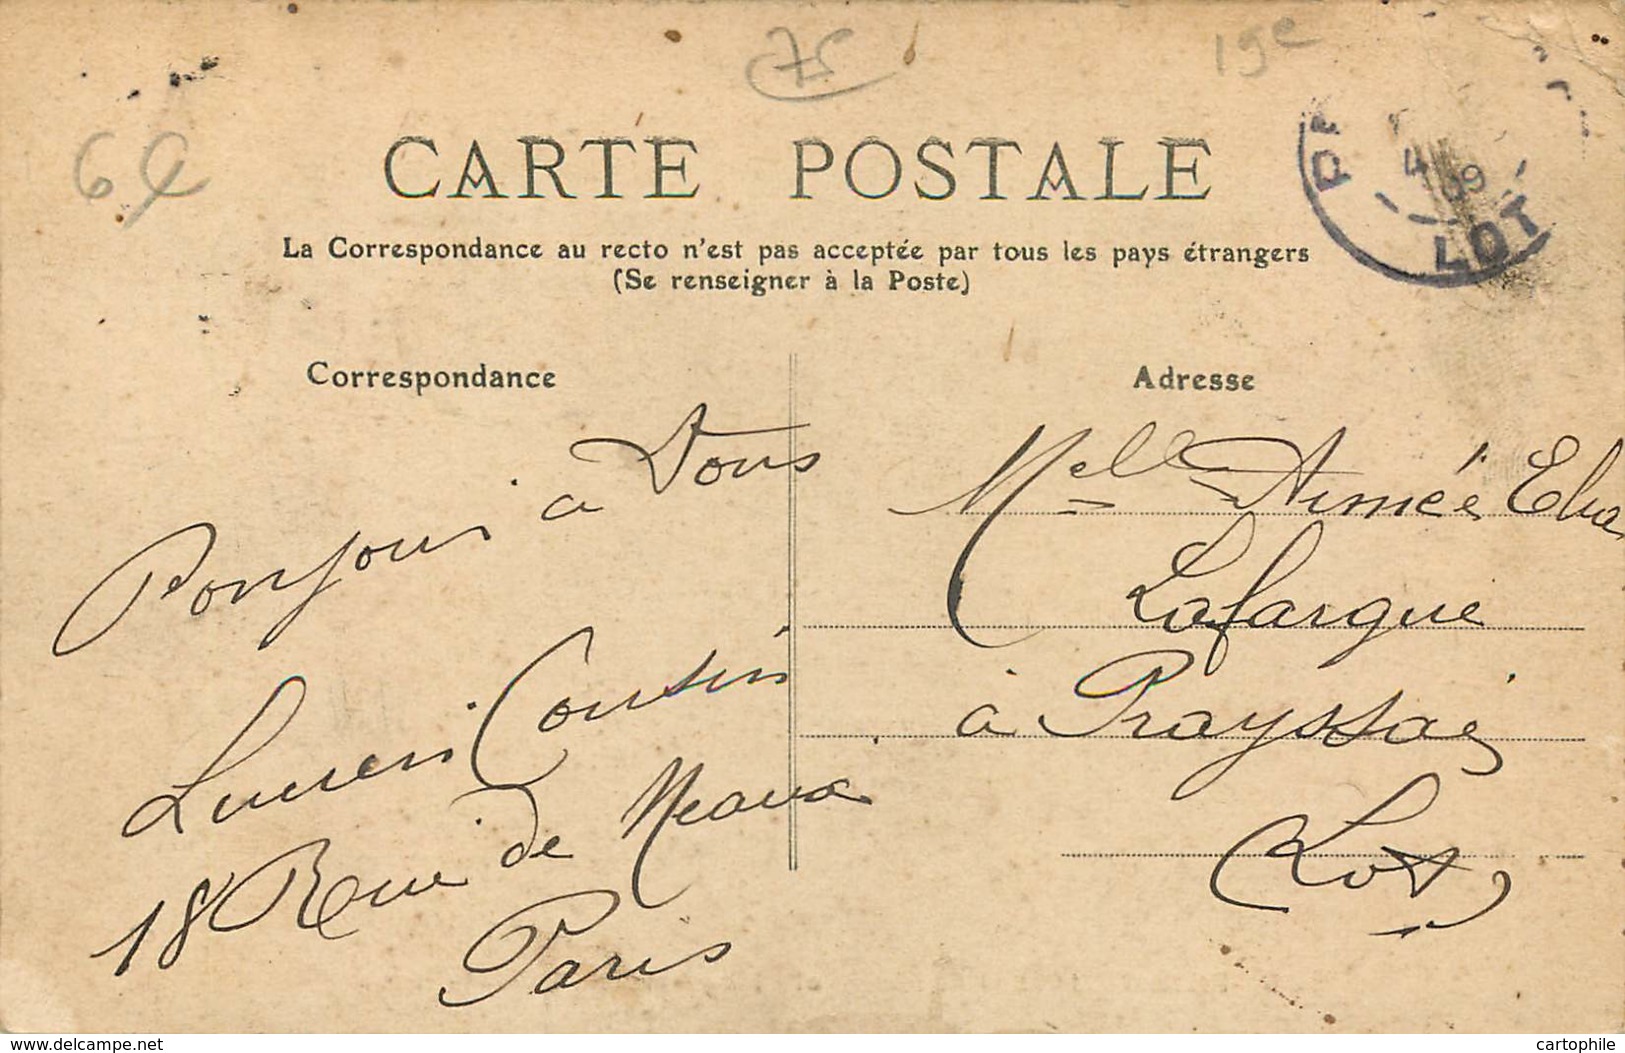 75
19e
6€
CARTE POSTALE
La Correspondance au recto n'est pas acceptée par tous les pays étrangers
(Se renseigner à la Poste)
PR
4
09
LOT
Correspondance
Bonjour à Vous
Lucien Cousin
18 Rue de Meaux
Paris
Adresse
Melle Aimée
Lafargue
à Prayssac
Lot
www.delcampe.net
cartophile